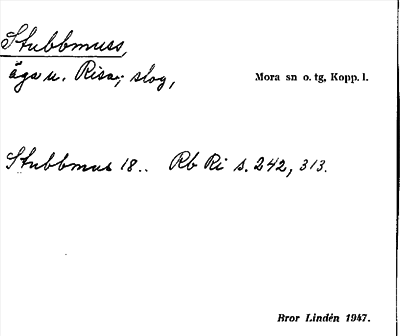 Stubbmuss,
äga u. Risa; slog,
Mora sn o. tg, Kopp. l.
Stubbmus 18.. Rb Ri s. 242, 313.
Bror Lindén 1947.